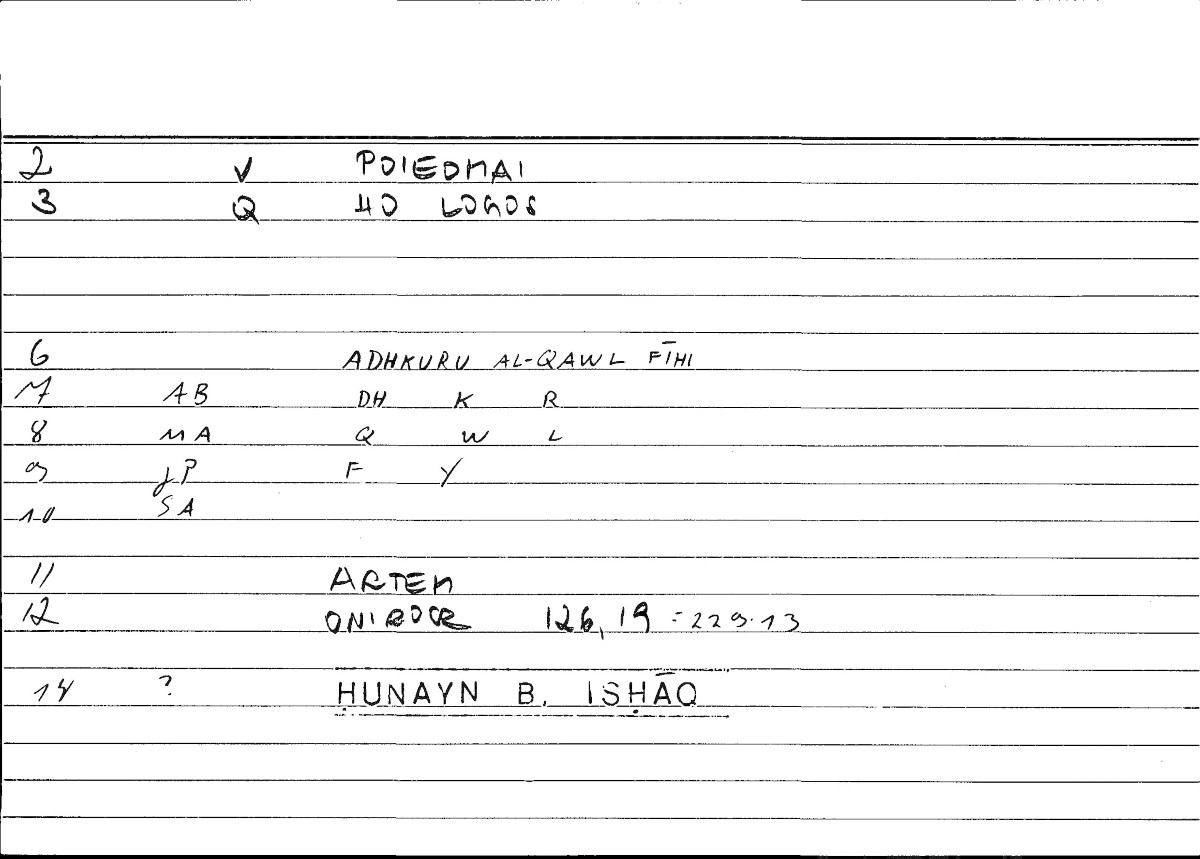 2 V POIEOMAI
3 Q HO LOGOS
6 ADHKURU AL-QAWL FĪHI
7 AB DH K R
8 MA Q W L
9 JP F Y
10 SA
11 ARTEM
12 ONIROCR 126,19 = 229.13
14 ? ḤUNAYN B. ISḤĀQ